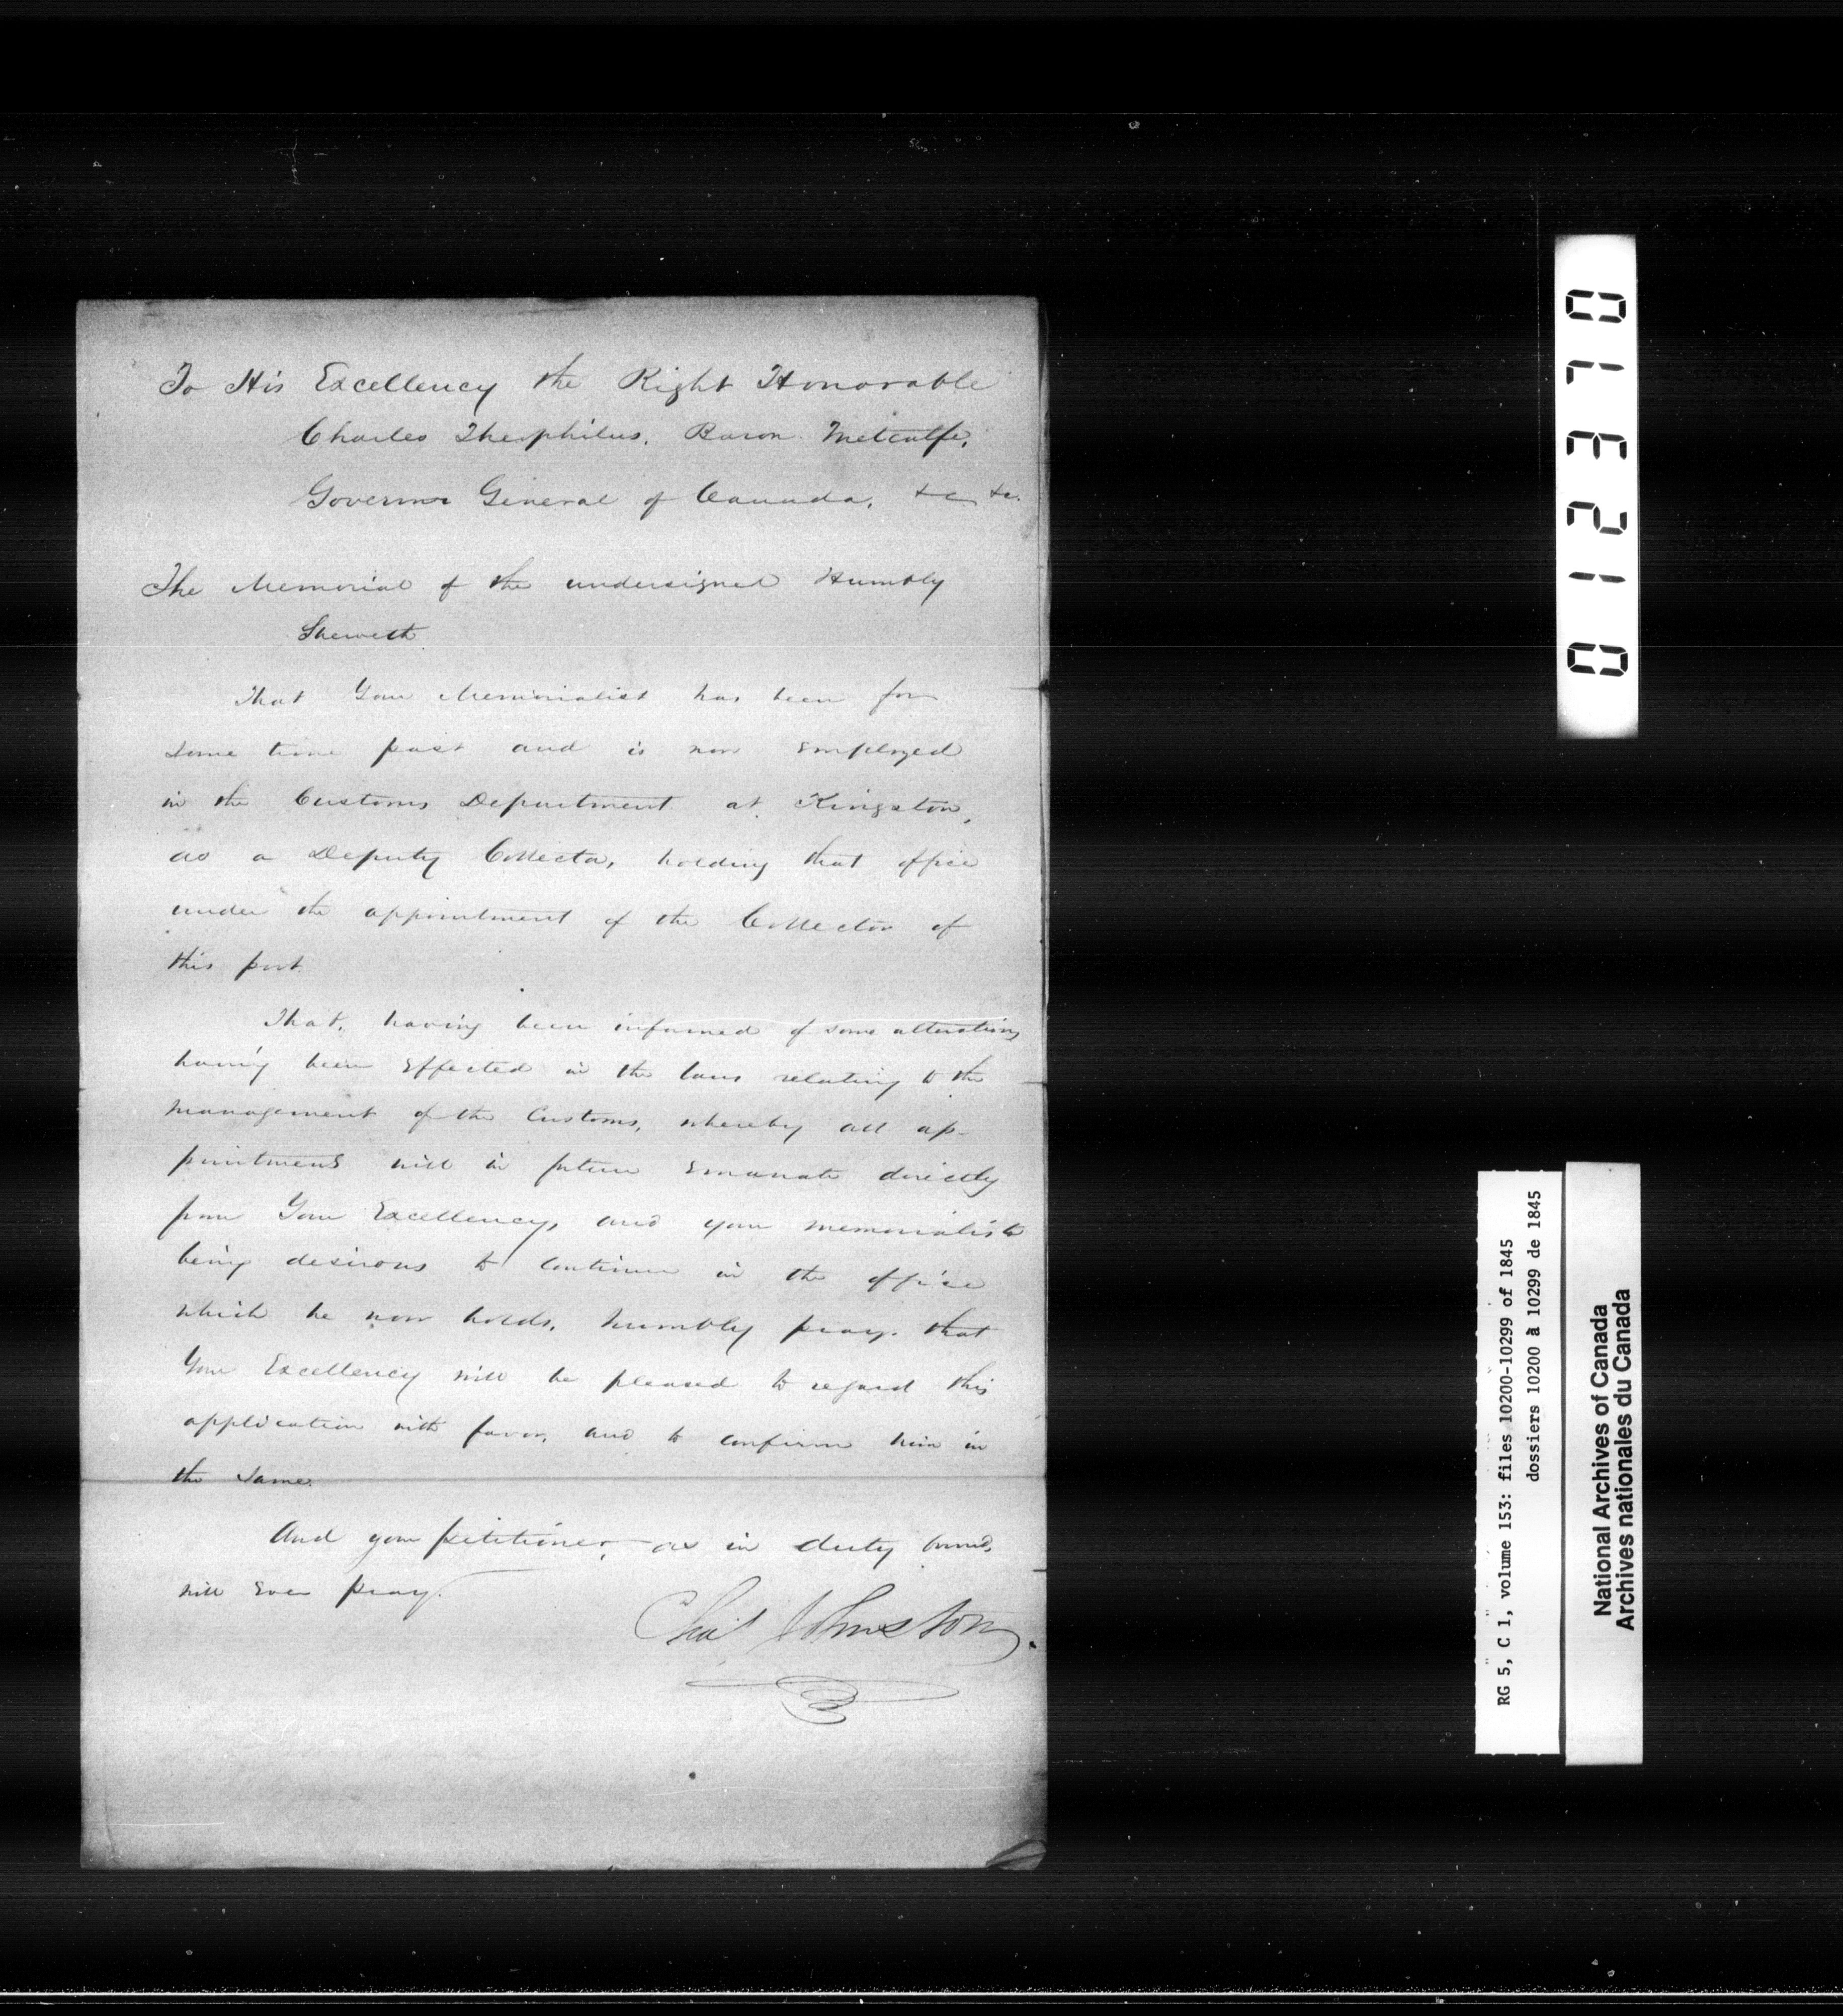 To His Excellency the Right Honorable
Charles Theophilus, Baron Metcalfe,
Governor General of Canada, &c &c.
The Memorial of the undersigned Humbly
Sheweth
That Your Memorialist has been for
some time past and is now employed
in the Customs Department at Kingston,
as a Deputy Collector, holding that office
under the appointment of the Collector of
this port.
That, having been informed of some alterations
having been effected in the laws relating to the
management of the Customs, whereby all ap-
pointments will in future emanate directly
from Your Excellency, and your memorialist
being desirous to continue in the office
which he now holds, humbly prays that
Your Excellency will be pleased to regard this
application with favor, and to confirm him in
the same.
And your petitioner, as in duty bound,
will ever pray.
Chas Johnston
012370
RG 5, C 1, volume 153: files 10200-10299 of 1845
dossiers 10200 à 10299 de 1845
National Archives of Canada
Archives nationales du Canada